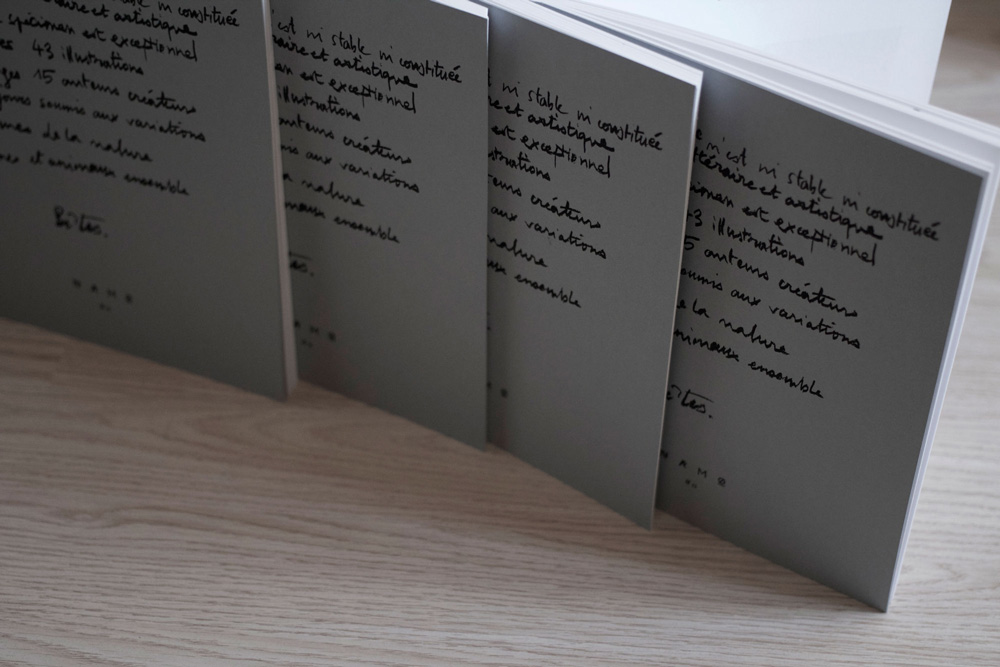 ni constituée
et artistique
spécimen est exceptionnel
43 illustrations
15 auteurs créateurs
soumis aux variations
de la nature
et animaux ensemble
Bêtes.
N A M O
'est ni stable ni constituée
raire et artistique
en est exceptionnel
illustrations
auteurs créateurs
is aux variations
a nature
maux ensemble
es.
A M O
ni stable ni constituée
re et artistique
est exceptionnel
strations
eurs créateurs
aux variations
nature
ux ensemble
n'est ni stable ni constituée
téraire et artistique
cimen est exceptionnel
43 illustrations
15 auteurs créateurs
oumis aux variations
e la nature
animaux ensemble
êtes.
N A M O